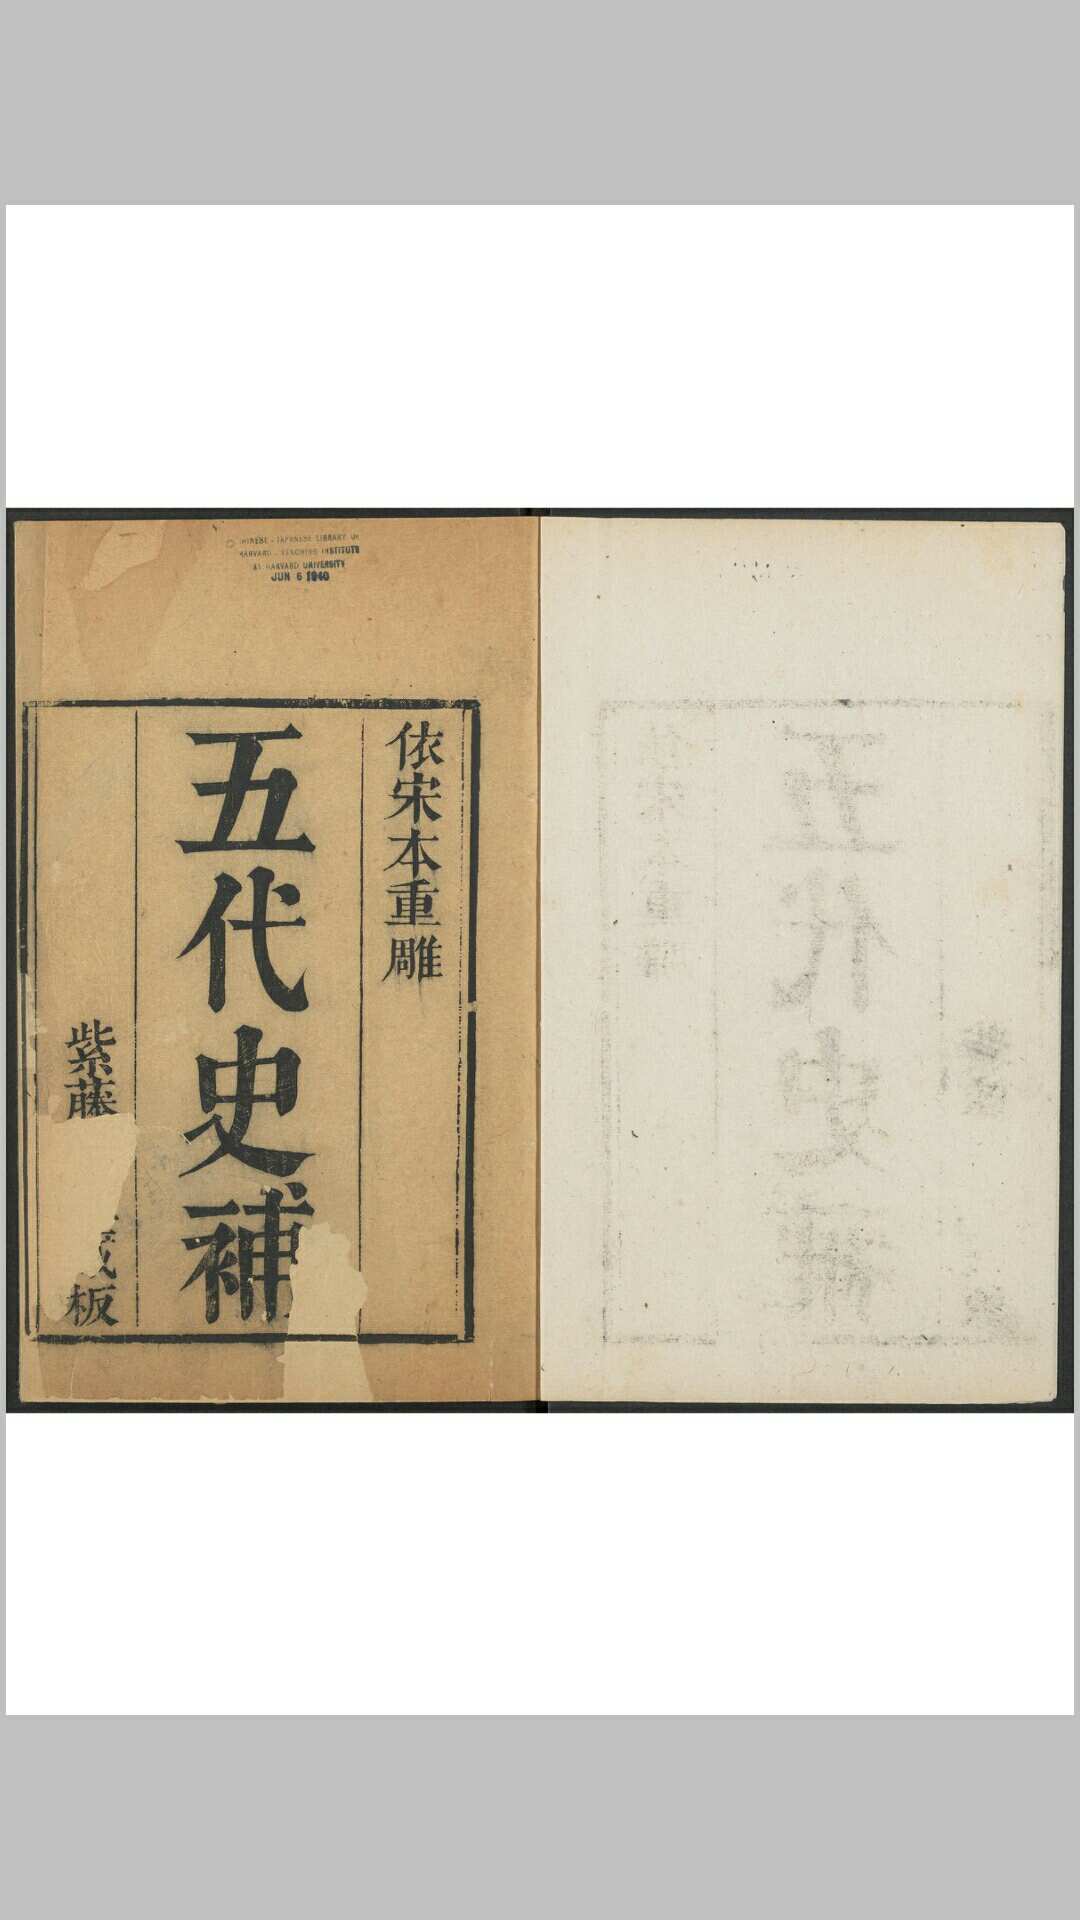 CHINESE - JAPANESE LIBRARY OF
HARVARD - YENCHING INSTITUTE
AT HARVARD UNIVERSITY
JUN 6 1940
依宋本重雕
五代史補
紫藤
藏板